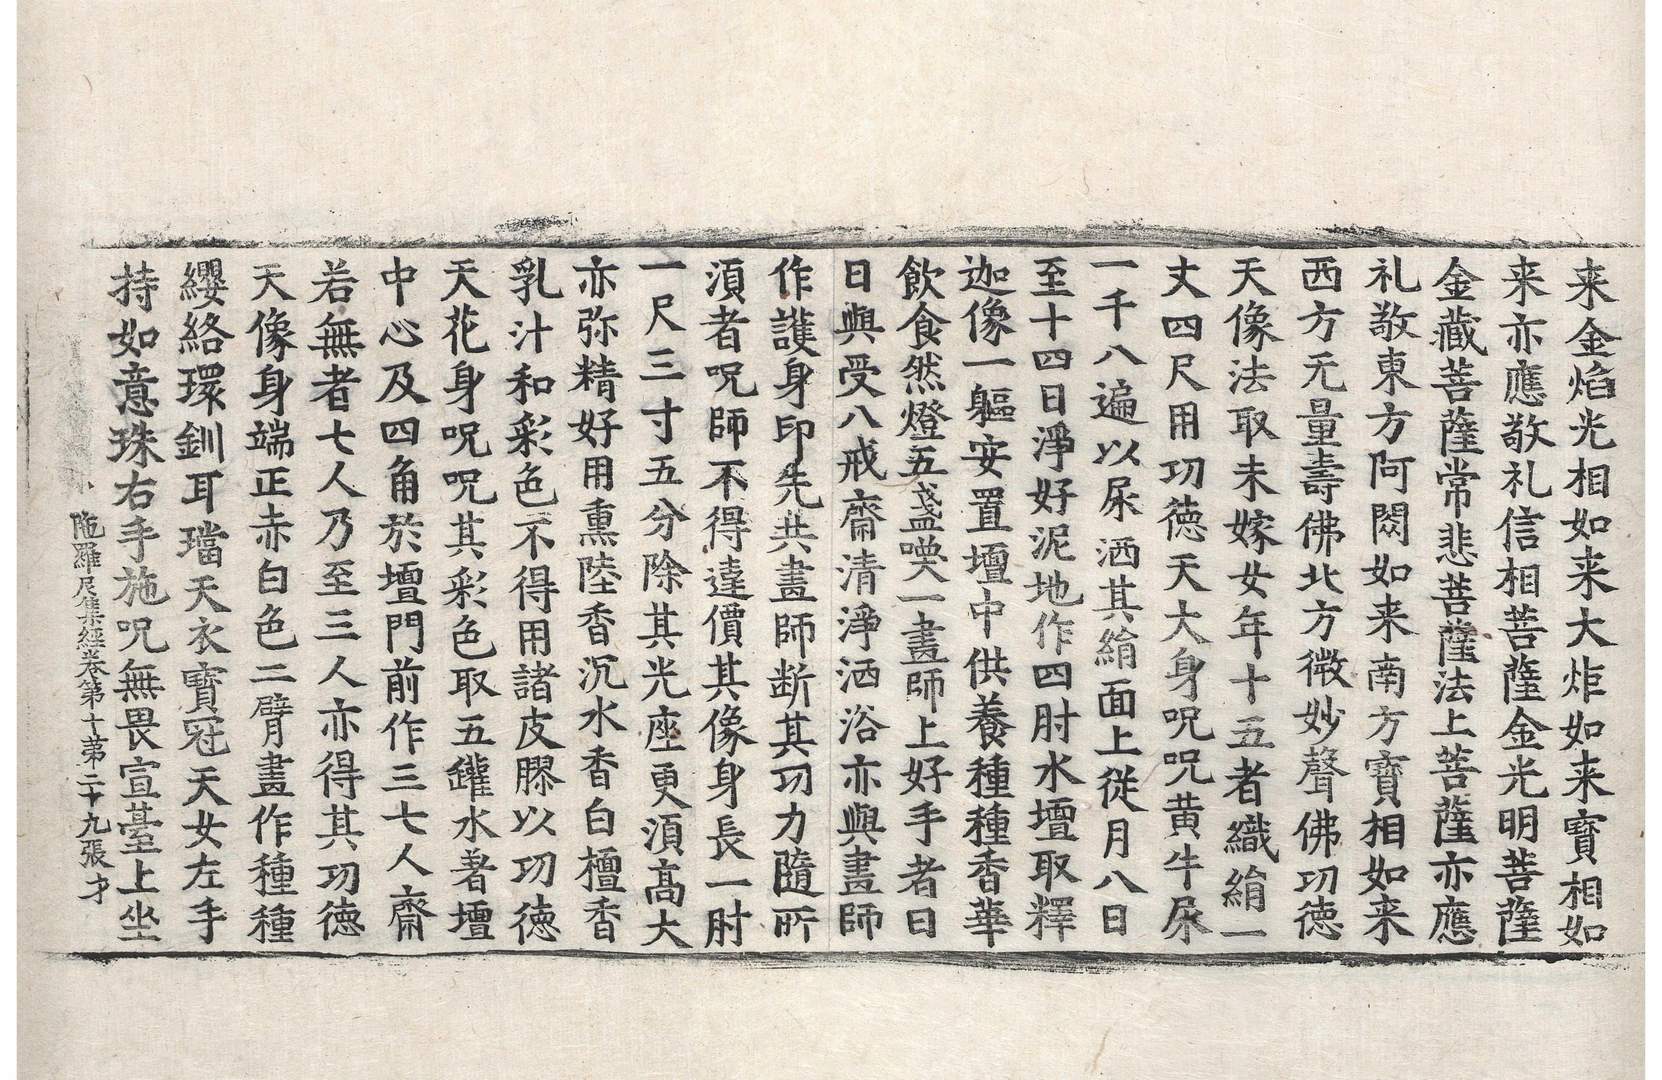 来金焰光相如来大炬如来寳相如
来亦應敬礼信相菩薩金光明菩薩
金藏菩薩常悲菩薩法上菩薩亦應
礼敬東方阿閦如来南方寳相如来
西方无量壽佛北方微妙聲佛功德
天像法取未嫁女年十五者織絹一
丈四尺用功德天大身呪呪黄牛尿
一千八遍以尿洒其絹面上從月八日
至十四日淨好泥地作四肘水壇取釋
迦像一軀安置壇中供養種種香華
飲食然燈五盞喚一畫師上好手者日
日與受八戒齋清淨洒浴亦與畫師
作護身印先共畫師断其功力隨所
湏者呪師不得違價其像身長一肘
一尺三寸五分除其光座更湏高大
亦弥精好用熏陸香沉水香白檀香
乳汁和彩色不得用諸皮膠以功德
天花身呪呪其彩色取五鑵水著壇
中心及四角於壇門前作三七人齋
若無者七人乃至三人亦得其功德
天像身端正赤白色二臂畫作種種
纓絡環釧耳璫天衣寳冠天女左手
持如意珠右手施呪無畏宣臺上坐
陁羅尼集經卷第十第二十九張才